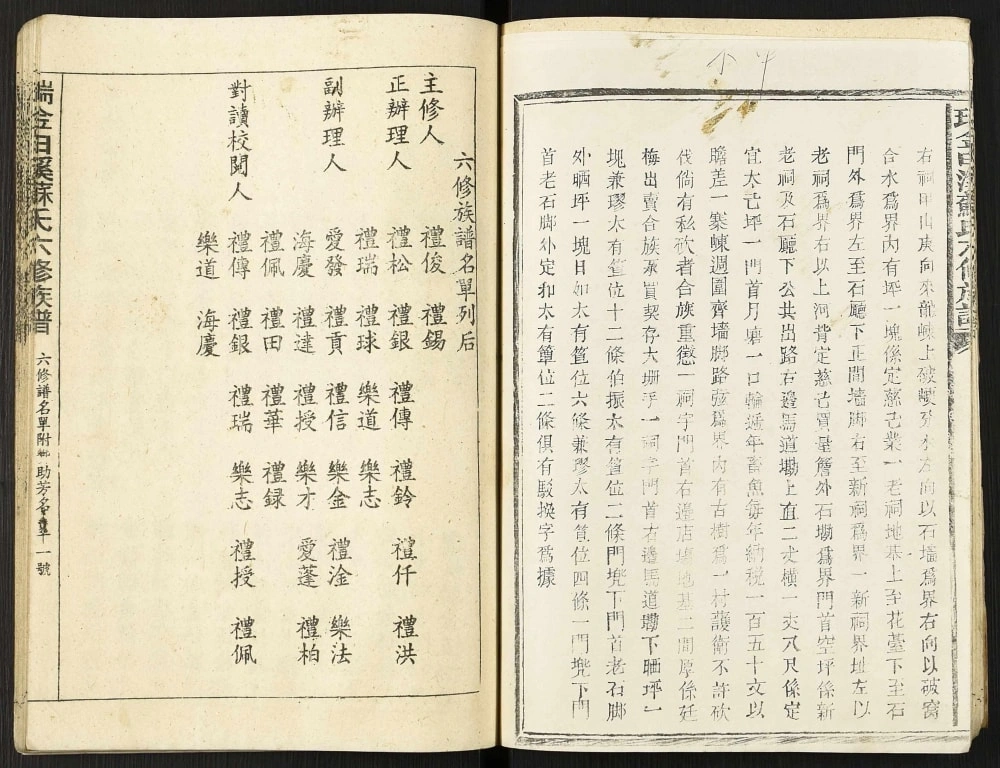 右祠甲山庚向來龍崠上破崾分水左向以石墻爲界右向以破窩
合水爲界內有坪一塊係定慈己業一老祠地基上至花臺下至石
門外爲界左至石廳下正間墻脚右至新祠爲界一新祠界址左以
老祠爲界右以上河背定慈己買屋簷外石塝爲界門首空坪係新
老祠及石廳下公共出路右邊馬道塝上直二丈橫一丈八尺係定
宜太己坪一門首月塘一口輪遞年畜魚每年納稅一百五十文以
贍差一寨崠週圍齊墻脚路弦爲界內有古樹爲一村護衛不許砍
伐倘有私砍者合族重懲一祠字門首右邊店塲地基二間厚係廷
梅出賣合族承買契存大珊手一祠字門首右邊馬道塝下晒坪一
塊兼璆太有篁位十二條伯振太有篁位二條門兠下門首老石脚
外晒坪一塊日如太有篁位六條兼璆太有篁位四條一門兠下門
首老石脚外定和太有篁位二條俱有駁換字爲據
六修族譜名單列后
主修人 禮俊 禮錫
正辦理人 禮松 禮銀 禮傳 禮鈴 禮仟 禮洪
禮瑞 禮球 樂道 樂志
副辦理人 愛發 禮貢 禮信 樂金 禮淦 樂法
海慶 禮達 禮授 樂才 愛蓬 禮柏
禮佩 禮田 禮華 禮録
對讀校閱人 禮傳 禮銀 禮瑞 樂志 禮授 禮佩
樂道 海慶
瑞金白溪蘇氏六修族譜 六修譜名單附 助芳名 一號